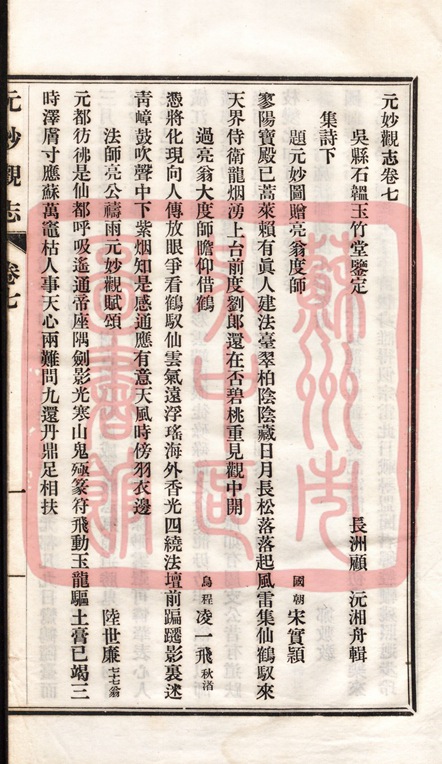 元妙觀志卷七
吳縣石韞玉竹堂鑒定 長洲顧沅湘舟輯
集詩下
題元妙圖贈亮翁度師 國朝宋實穎
寥陽寶殿已蒿萊賴有眞人建法臺翠柏陰陰藏日月長松落落起風雷集仙鶴馭來
天界侍衛龍烟湧上台前度劉郎還在否碧桃重見觀中開
過亮翁大度師瞻仰借鶴 烏程凌一飛秋渚
憑將化現向人傳放眼爭看鶴馭仙雲氣遠浮瑤海外香光四繞法壇前蹁躚影裏迷
青嶂鼓吹聲中下紫烟知是感通應有意天風時傍羽衣邊
法師亮公禱雨元妙觀賦頌 陸世廉七十七翁
元都彷彿是仙都呼吸遙通帝座隅劍影光寒山鬼殛篆符飛動玉龍驅土膏已竭三
時澤膚寸應蘇萬竈枯人事天心兩難問九還丹鼎足相扶
元妙觀志 卷七 一
蘇州市
吳中區
圖書館